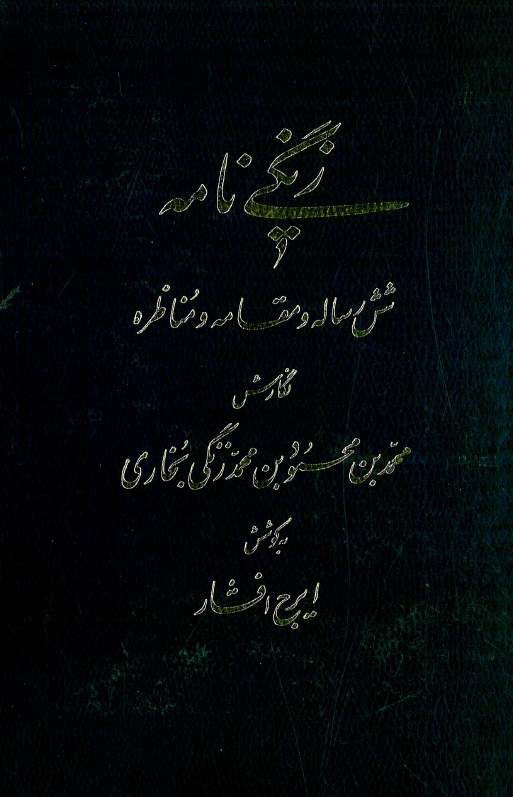 زنگی نامه
و
شش رساله و مقامه و مُناظره
نگارش
محمّد بن محمُود بن محمّد زنگی بُخاری
به کوشش
ایرج افشار